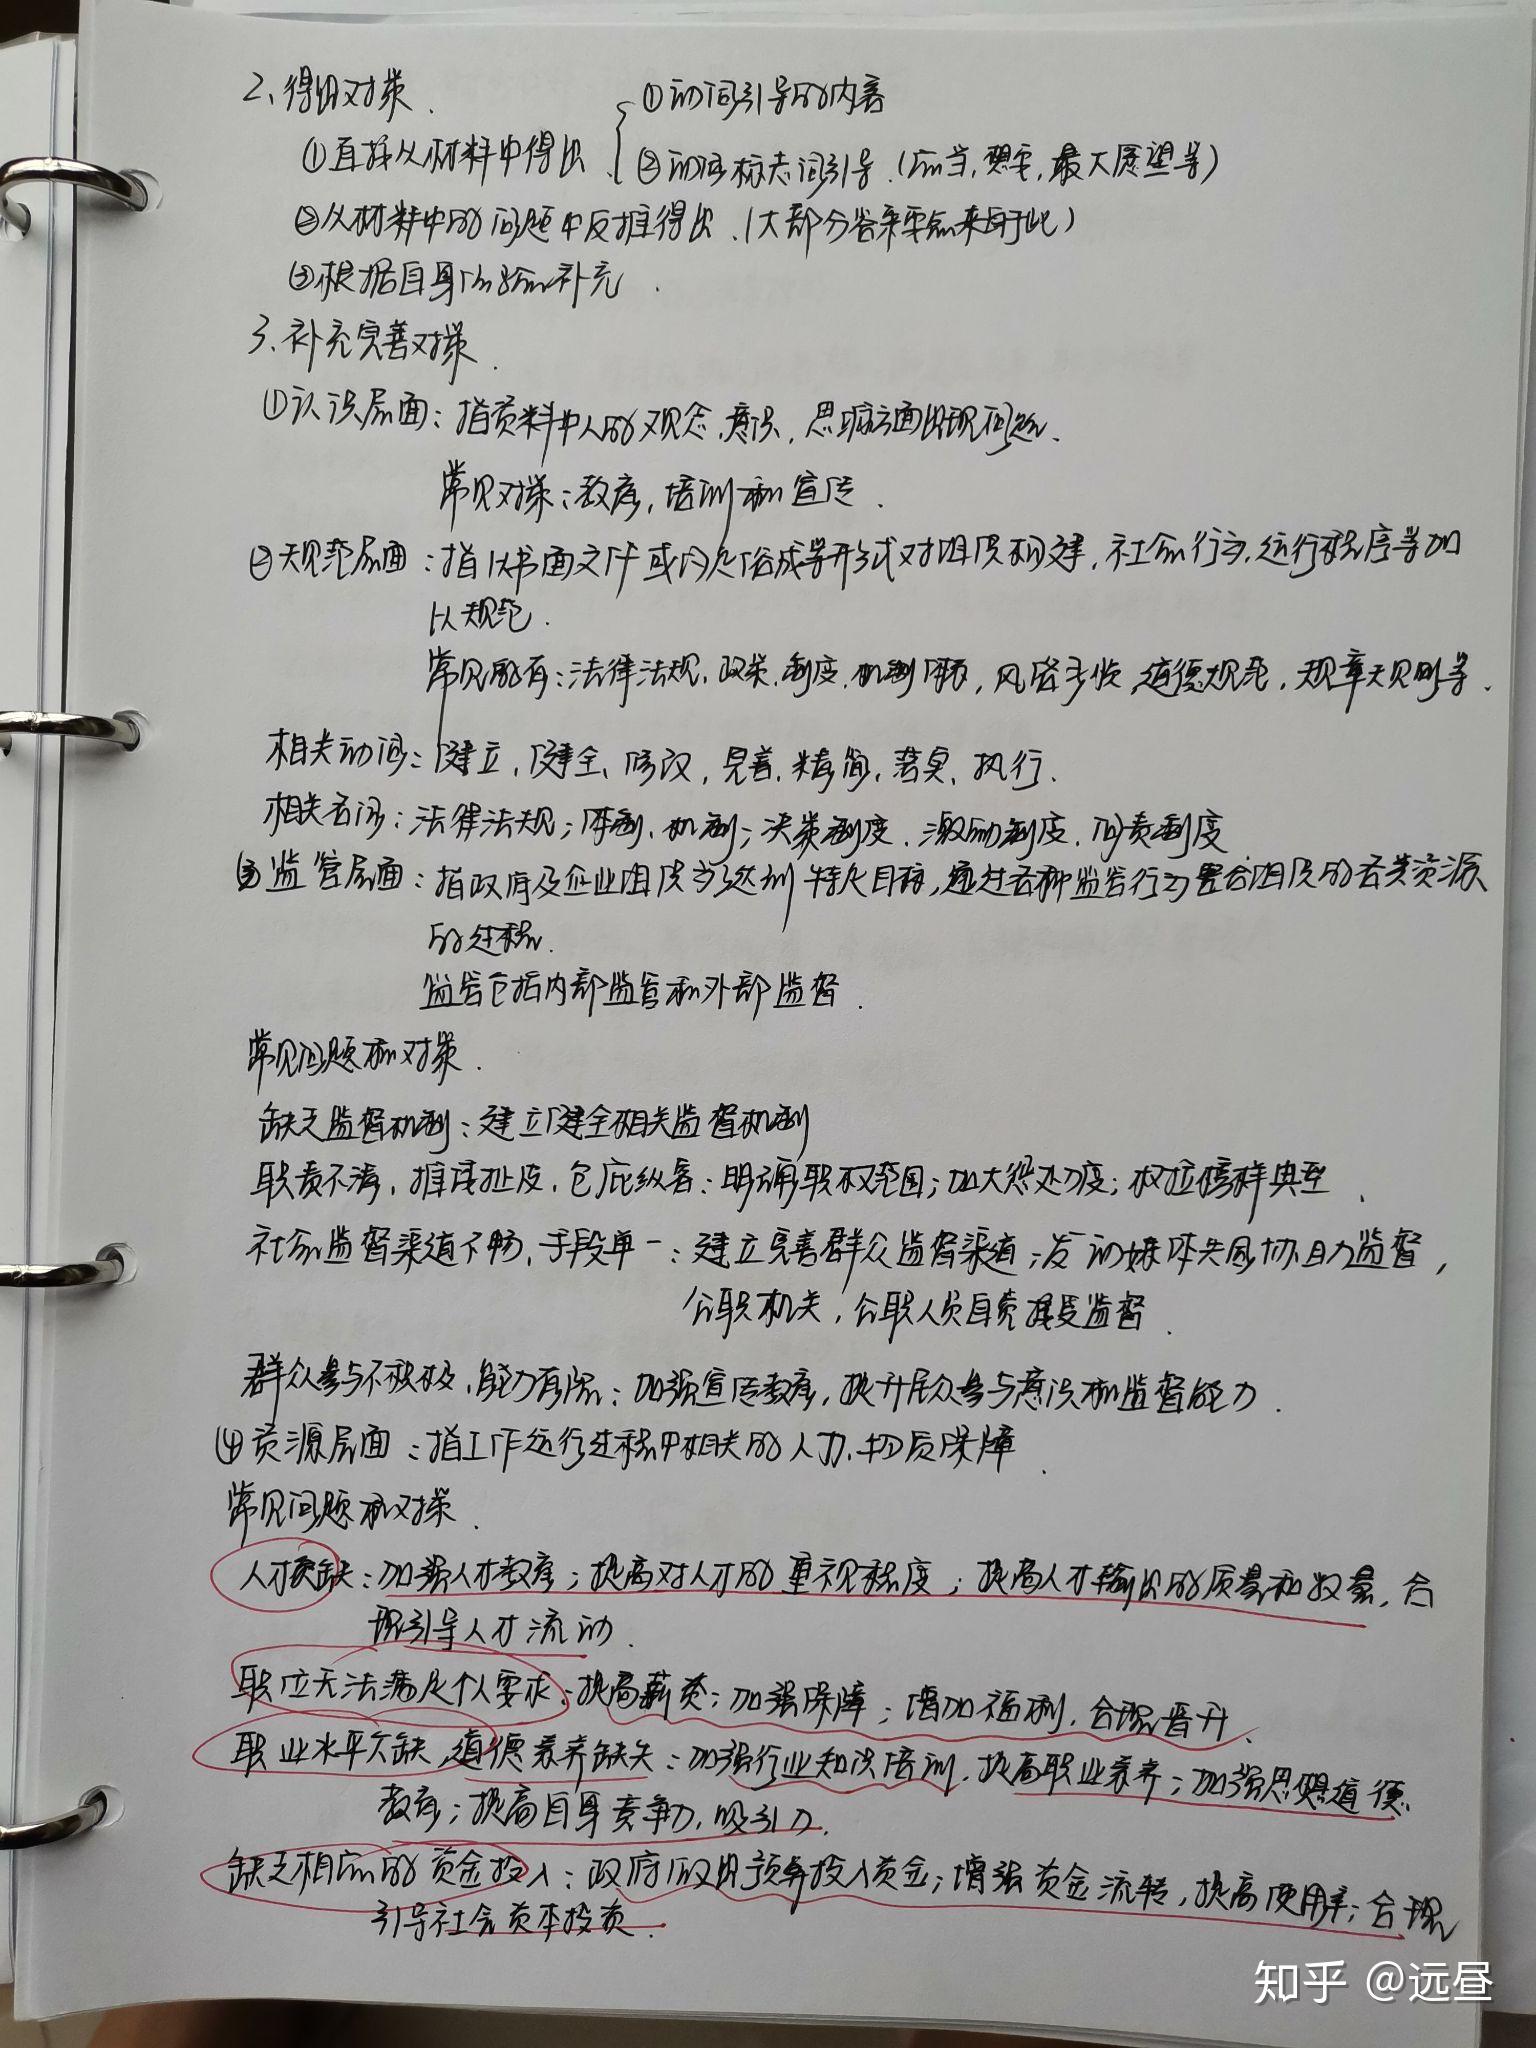 2、得出对策.
①动词引导的内容
①直接从材料中得出
②动词标志词引导.(应当,想要,最大愿望等)
②从材料中的问题中反推得出.(大部分答案要点来自于此)
③根据自身经验补充.
3、补充完善对策.
①认识层面:指资料中人的观念、意识,思政方面出现问题.
常见对策:教育,培训和宣传.
②规范层面:指以书面文件或约定俗成等形式对组织构建,社会行为,运行程序等加
以规范.
常见的有:法律法规,政策,制度,机制体制,风俗习惯,道德规范,规章规则等.
相关动词:健立,健全,修改,完善,精简,落实,执行.
相关名词:法律法规;体制,机制;决策制度,激励制度,问责制度
③监管层面:指政府及企业组织为达到特定目标,通过各种监管行为整合组织的各类资源
的过程.
监管包括内部监管和外部监督.
常见问题和对策.
缺乏监督机制:建立健全相关监督机制
职责不清,推诿扯皮,包庇纵容:明确职权范围;加大惩处力度;树立榜样典型.
社会监督渠道不畅,手段单一:建立完善群众监督渠道;发动媒体共同协助监督,
公职机关,公职人员自觉接受监督.
群众参与不积极,能力有限:加强宣传教育,提升民众参与意识和监督能力.
④资源层面:指工作运行过程中相关的人力、物质保障.
常见问题和对策.
人才紧缺:加强人才教育;提高对人才的重视程度;提高人才输出的质量和数量,合
理引导人才流动.
职位无法满足个人要求:提高薪资;加强保障;增加福利,合理晋升.
职业水平欠缺,道德素养缺失:加强行业知识培训,提高职业素养;加强思想道德
教育;提高自身竞争力,吸引力.
缺乏相应的资金投入:政府做出预算投入资金;增强资金流转,提高使用率;合理
引导社会资本投资.
知乎 @远昼